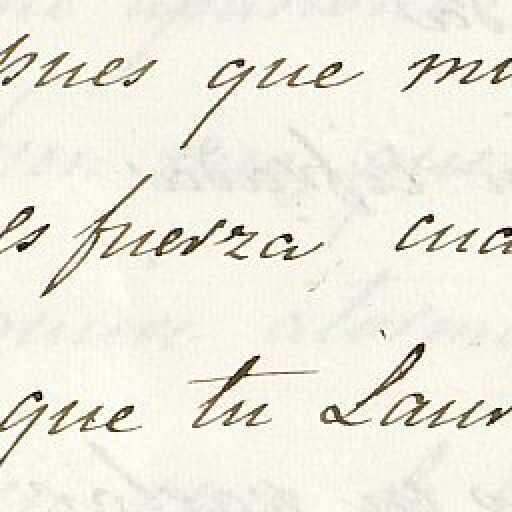 pues que mu
es fuerza cua
que tu Laur